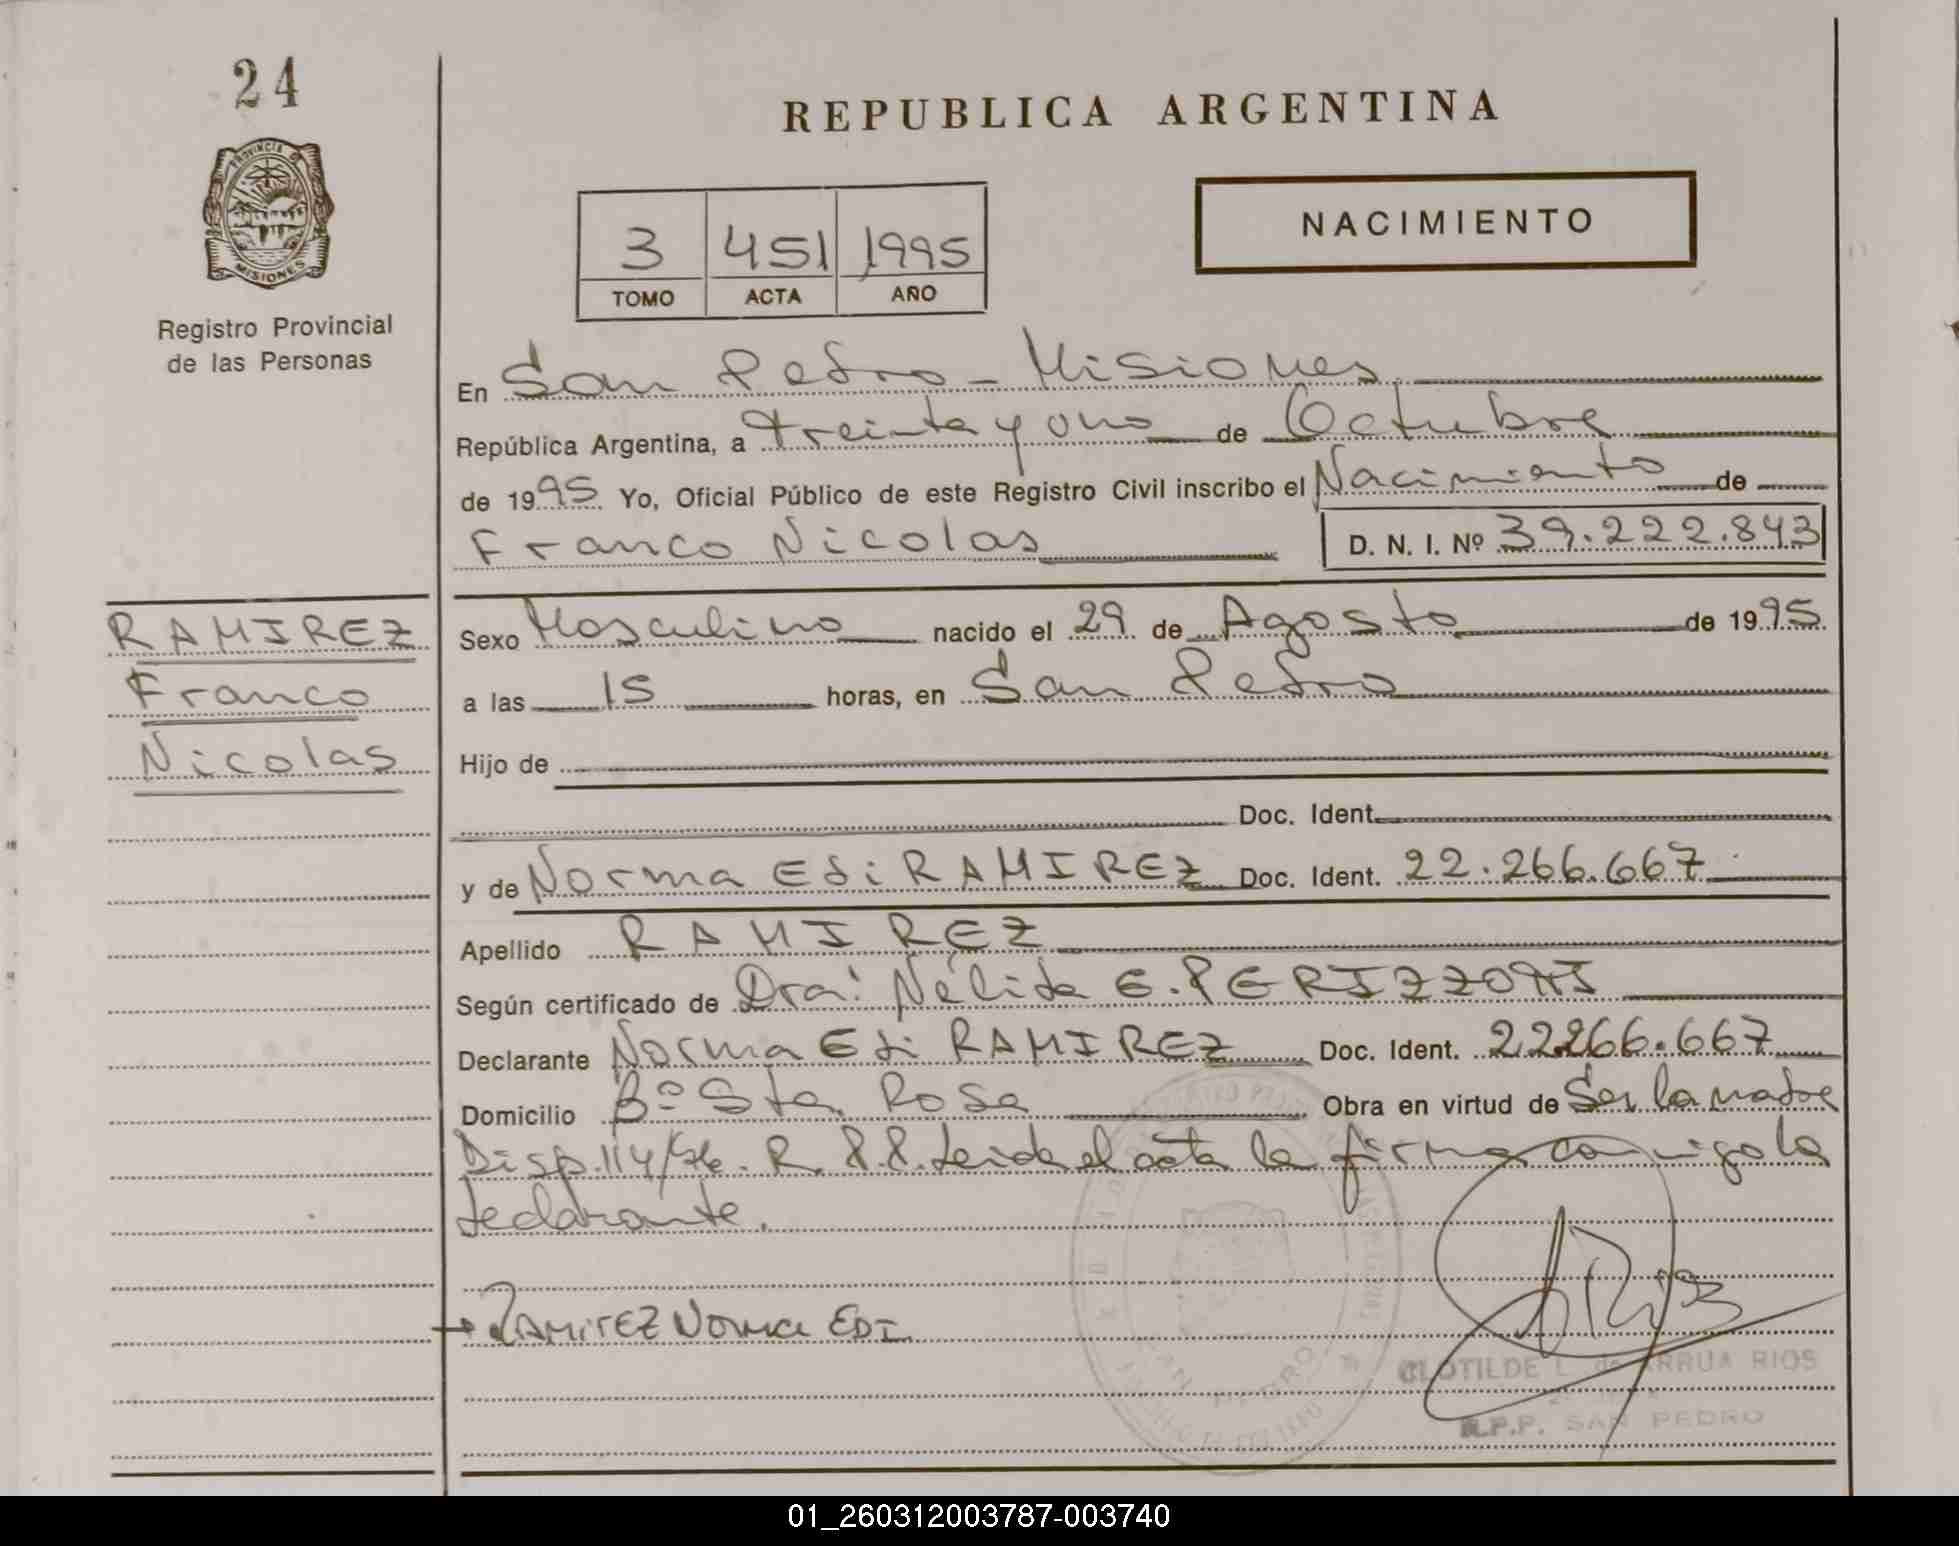 24
REPUBLICA ARGENTINA
PROVINCIA DE
MISIONES
Registro Provincial
de las Personas
3 451 1995
TOMO ACTA AÑO
NACIMIENTO
En San Pedro - Misiones
República Argentina, a treinta y uno de Octubre
de 1995 Yo, Oficial Público de este Registro Civil inscribo el Nacimiento de
Franco Nicolas D. N. I. Nº 39.222.843
RAMIREZ
Franco
Nicolas
Sexo Masculino nacido el 29 de Agosto de 1995
a las 15 horas, en San Pedro
Hijo de
Doc. Ident.
y de Norma Edi RAMIREZ Doc. Ident. 22.266.667
Apellido RAMIREZ
Según certificado de Dra. Nélida E.
Declarante Norma Edi RAMIREZ Doc. Ident. 22266.667
Domicilio Bº Sta. Rosa Obra en virtud de Ser la madre
Disp. 114/ R. P. P. Leida el acta la firma conmigo la
declarante.
RAMIREZ NORMA EDI
CLOTILDE L. de ARRUA RIOS
R.P.P. SAN PEDRO
SAN PEDRO
01_260312003787-003740